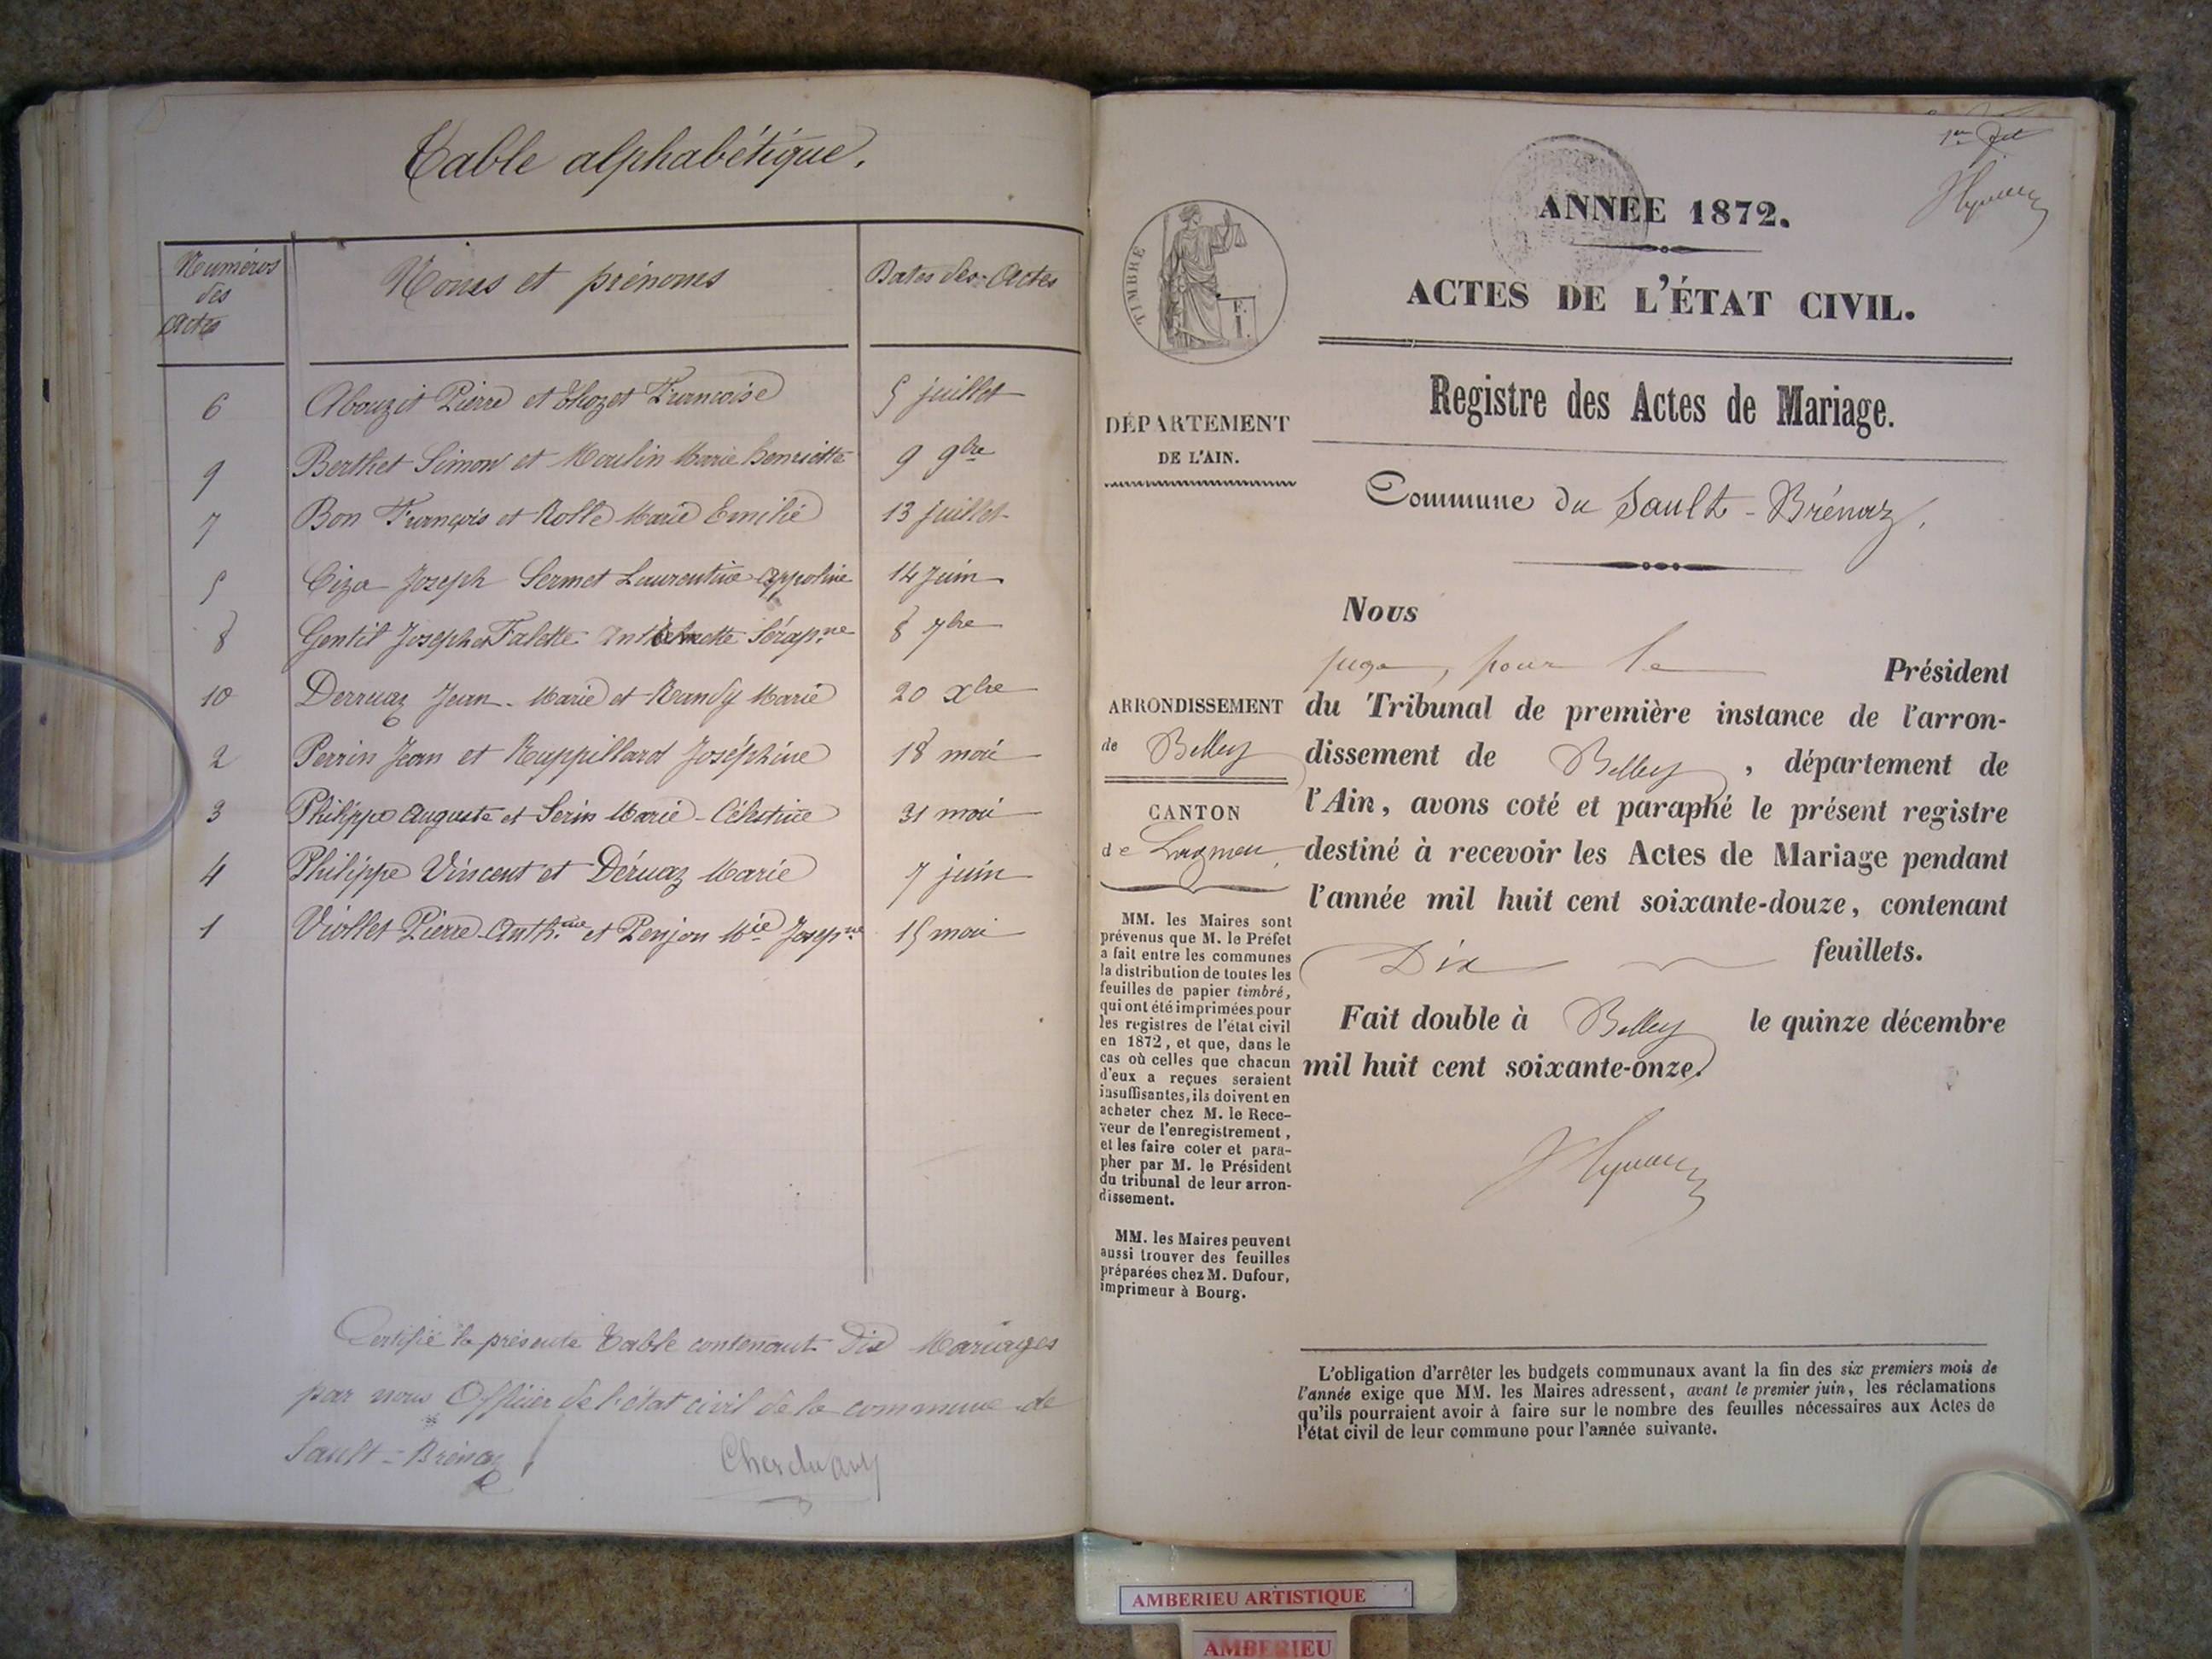 Table alphabétique.
Numéros des Actes
Noms et prénoms
Dates des Actes
6 Abouzit Pierre et Thozet Françoise 5 juillet
9 Berthet Simon et Moulin Marie henriette 9 9bre
7 Bon François et Rolle Marie Emilie 13 juillet
5 Ciza Joseph Sermet Laurentine Appoline 14 Juin
8 Gentil Joseph et Falette Anthelmette Sérap.ne 8 7bre
10 Derruaz Jean-Marie et Marie 20 xbre
2 Perrin Jean et Rappillard Joséphine 18 mai
3 Philippe Auguste et Serin Marie-Célestine 31 mai
4 Philippe Vincent et Déruaz Marie 7 juin
1 Viollet Pierre Anth.me et Penjon Mie Josep.ne 15 mai
Certifié la présente Table contenant Dix Mariages
par nous Officier de l'état civil de la commune de
Sault-Brénaz
TIMBRE
ANNÉE 1872.
ACTES DE L'ÉTAT CIVIL.
Registre des Actes de Mariage.
Commune du Sault-Brénaz.
DÉPARTEMENT
DE L'AIN.
ARRONDISSEMENT
de Belley
CANTON
de Lagnieu
MM. les Maires sont
prévenus que M. le Préfet
a fait entre les communes
la distribution de toutes les
feuilles de papier timbré,
qui ont été imprimées pour
les registres de l'état civil
en 1872, et que, dans le
cas où celles que chacun
d'eux a reçues seraient
insuffisantes, ils doivent en
acheter chez M. le Rece-
veur de l'enregistrement,
et les faire coter et para-
pher par M. le Président
du tribunal de leur arron-
dissement.
MM. les Maires peuvent
aussi trouver des feuilles
préparées chez M. Dufour,
imprimeur à Bourg.
Nous
juge, pour le Président
du Tribunal de première instance de l'arron-
dissement de Belley, département de
l'Ain, avons coté et paraphé le présent registre
destiné à recevoir les Actes de Mariage pendant
l'année mil huit cent soixante-douze, contenant
Dix feuillets.
Fait double à Belley le quinze décembre
mil huit cent soixante-onze.
L'obligation d'arrêter les budgets communaux avant la fin des six premiers mois de
l'année exige que MM. les Maires adressent, avant le premier juin, les réclamations
qu'ils pourraient avoir à faire sur le nombre des feuilles nécessaires aux Actes de
l'état civil de leur commune pour l'année suivante.
AMBERIEU ARTISTIQUE
AMBERIEU